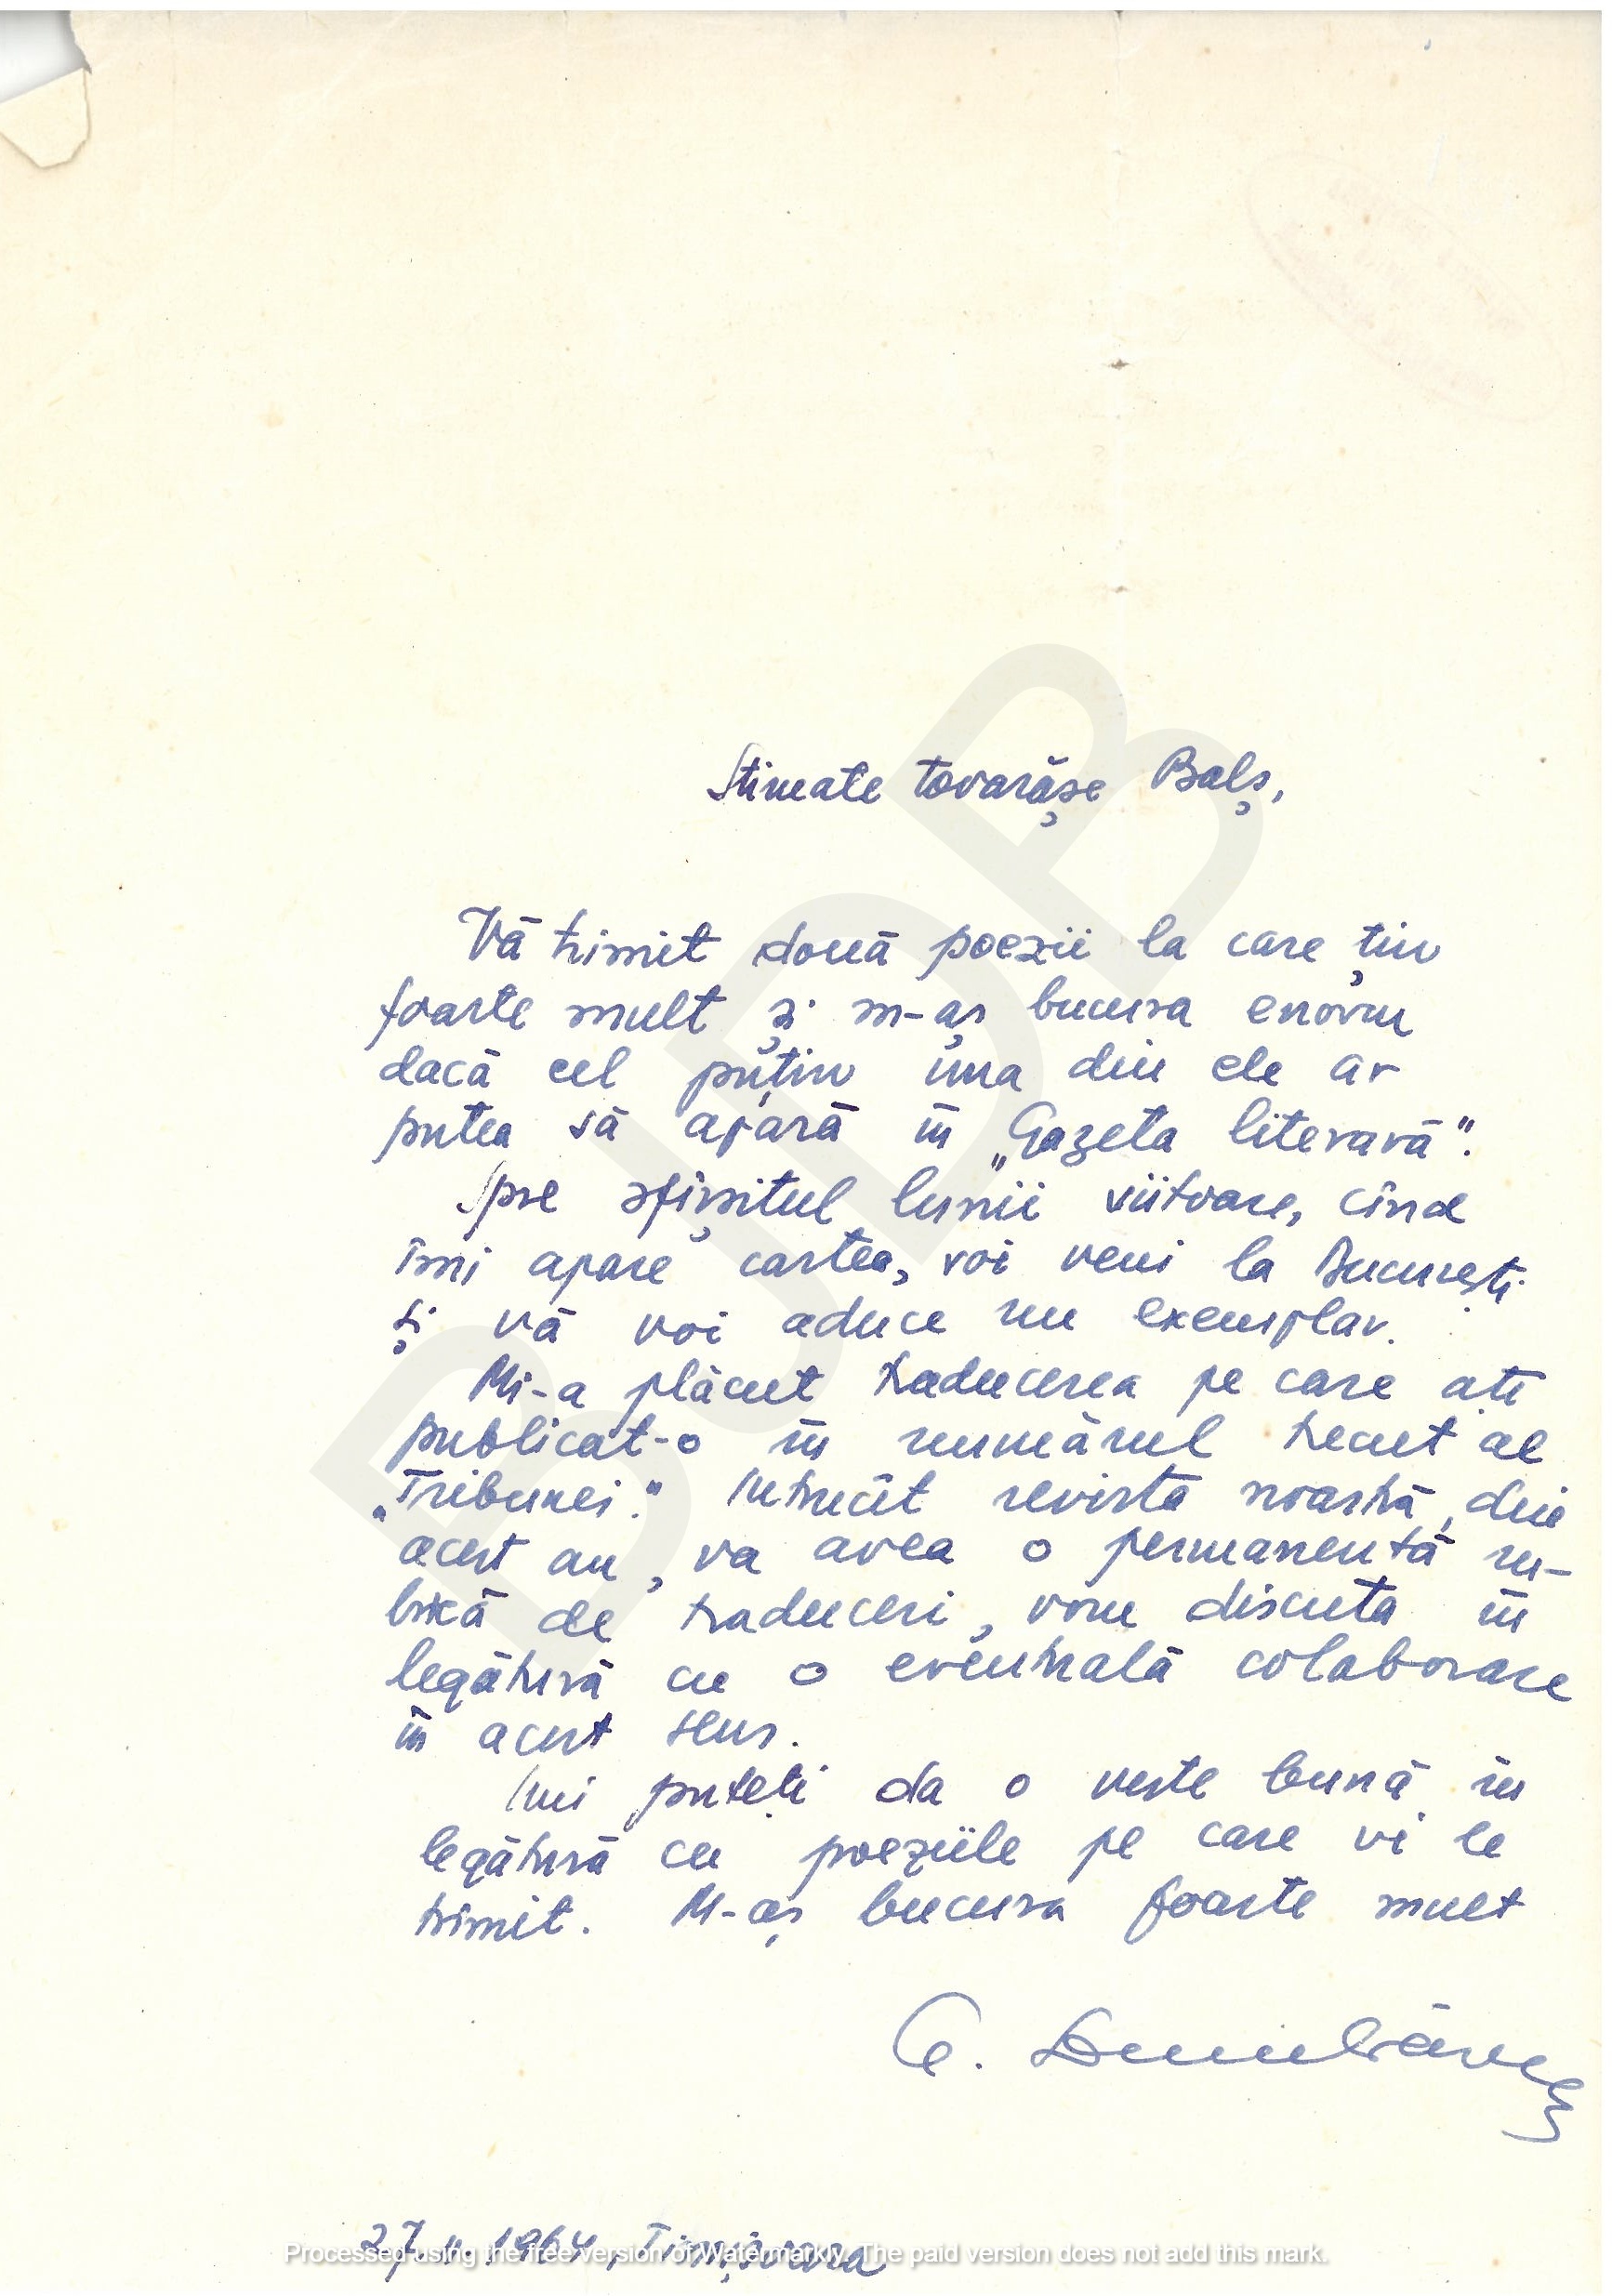 Stimate tovarășe Balș,
Vă trimit două poezii la care țin
foarte mult și m-aș bucura enorm
dacă cel puțin una din ele ar
putea să apară în „Gazeta literară".
Spre sfîrșitul lunii viitoare, cînd
îmi apare cartea, voi veni la București
și vă voi aduce un exemplar.
Mi-a plăcut traducerea pe care ați
publicat-o în numărul trecut al
„Tribunei". Întrucît revista noastră, din
acest an, va avea o permanentă ru-
brică de traduceri, vom discuta în
legătură cu o eventuală colaborare
în acest sens.
Îmi puteți da o veste bună în
legătură cu poeziile pe care vi le
trimit. M-aș bucura foarte mult
27.II.1964, Timișoara
Processed using the free version of Watermarkly. The paid version does not add this mark.
BJDB